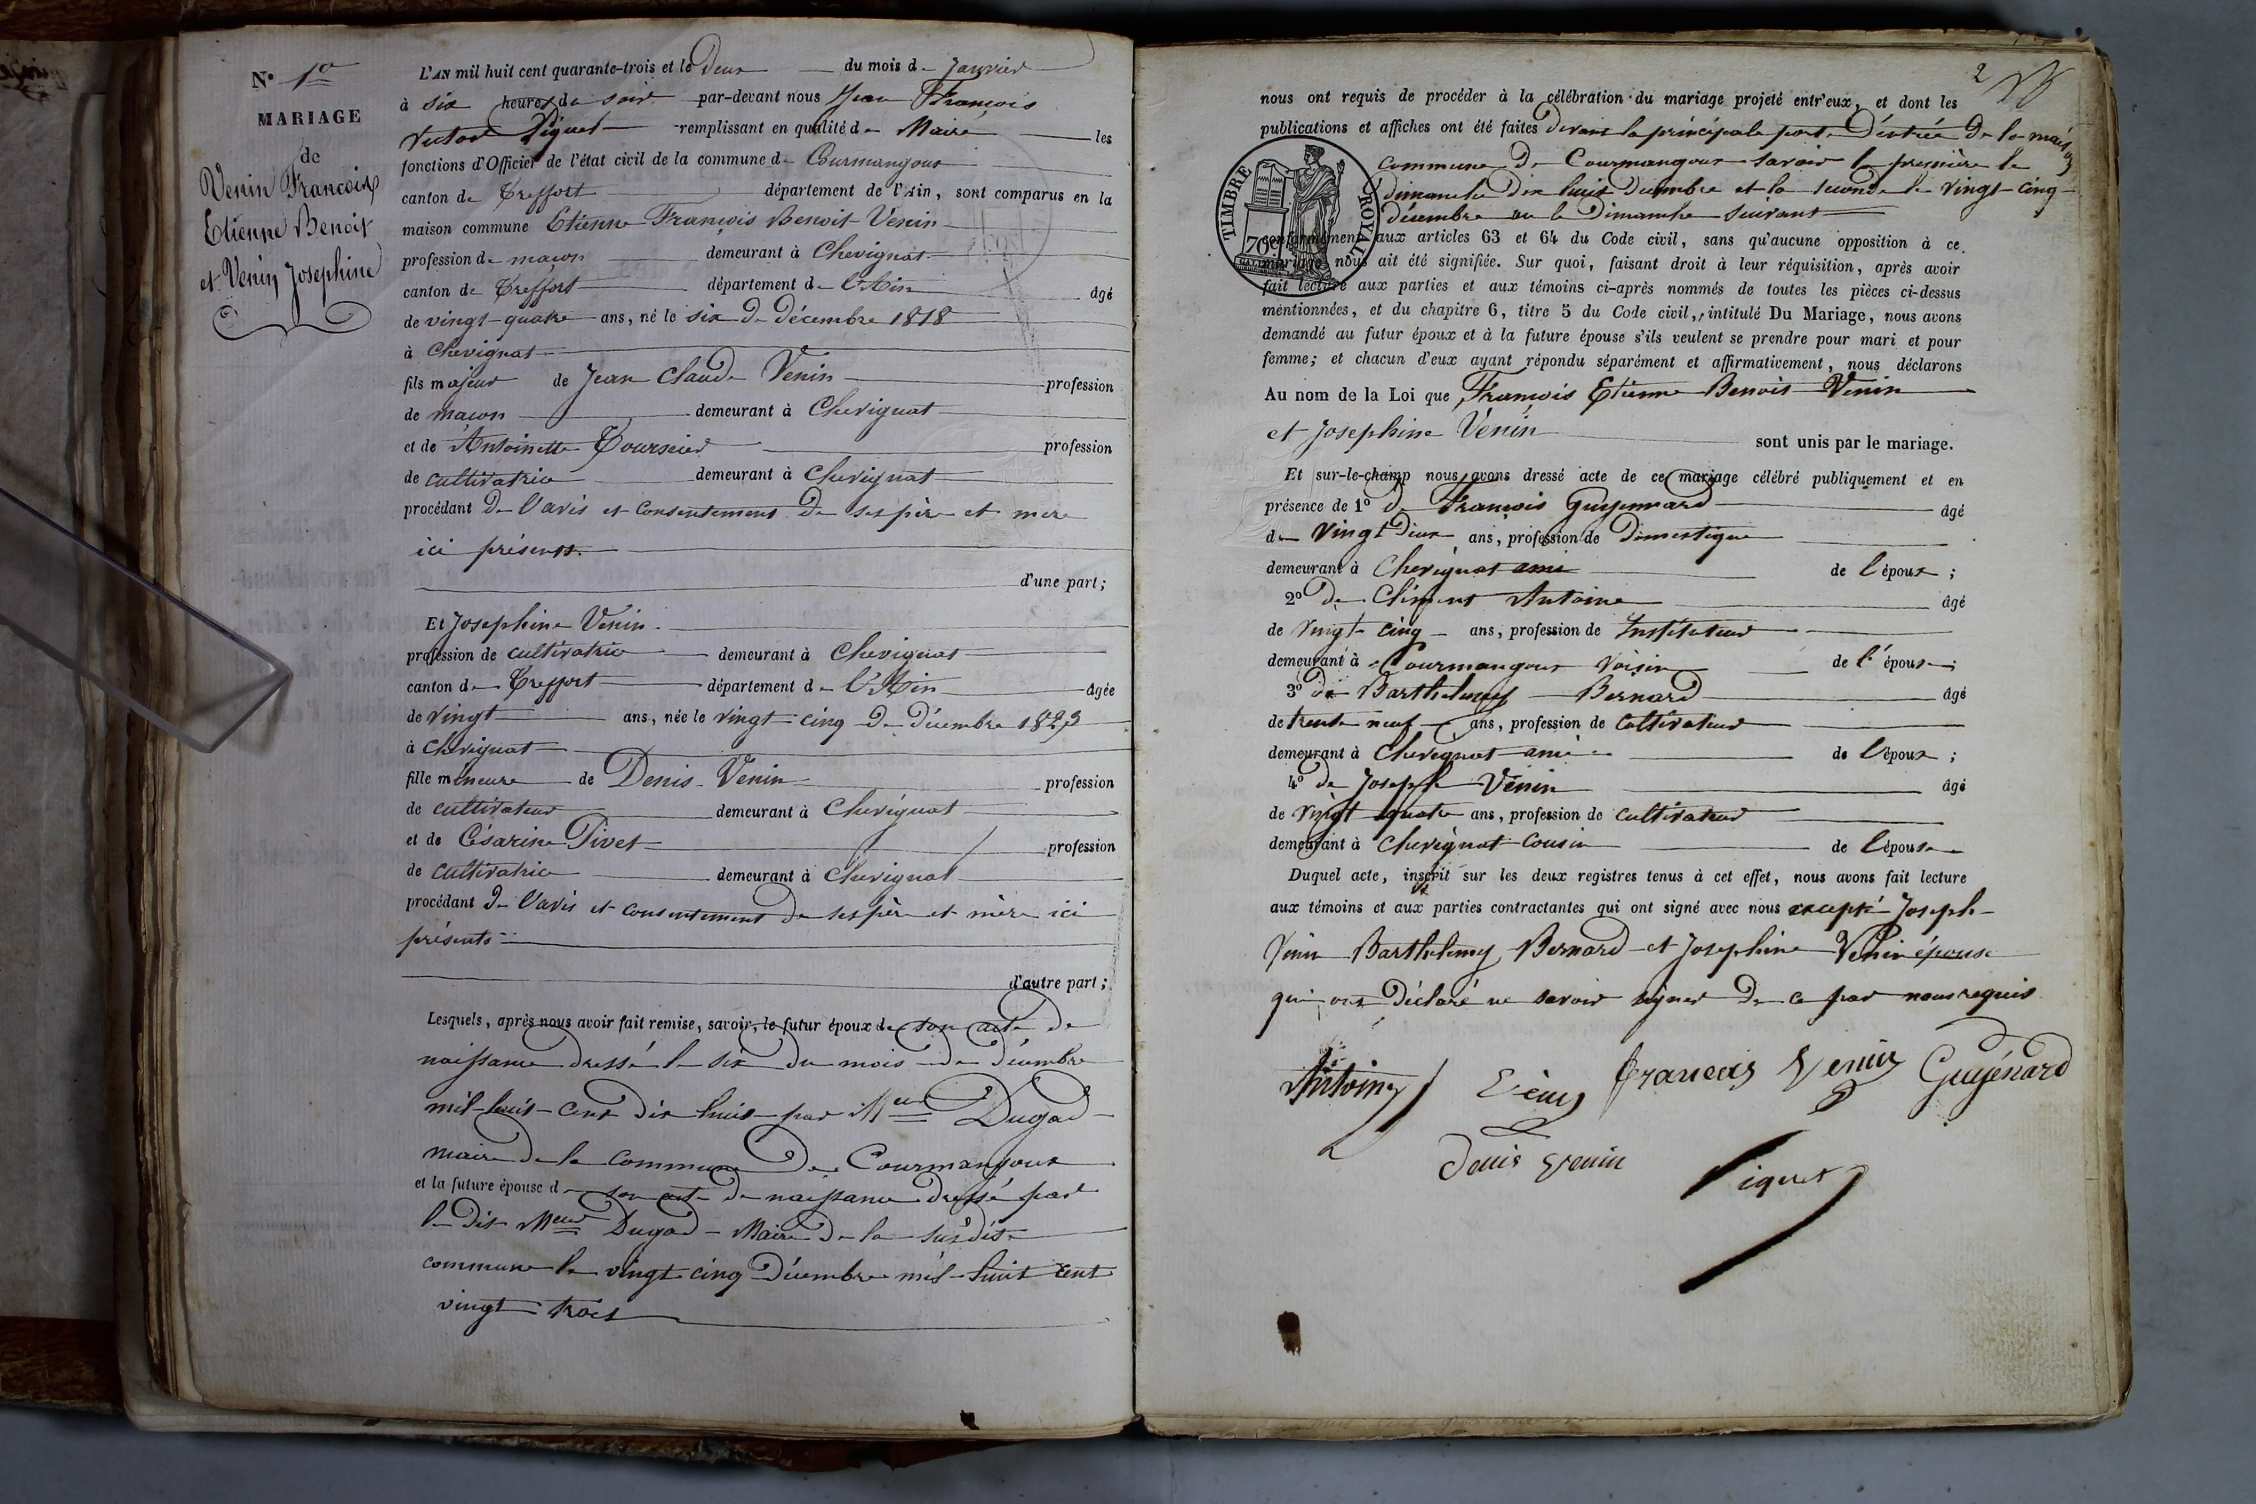 N° 1er
MARIAGE
de
Venin François
Etienne Benoit
et Venin Josephine
L'AN mil huit cent quarante-trois et le deux du mois de Janvier
à six heures du soir par-devant nous Jean François
Victor Piquet remplissant en qualité de Maire les
fonctions d'Officier de l'état civil de la commune de Courmangoux
canton de Treffort département de l'Ain, sont comparus en la
maison commune Etienne François Benoit Venin
profession de maçon demeurant à Chevignat
canton de Treffort département de l'Ain âgé
de vingt-quatre ans, né le six de décembre 1818
à Chevignat
fils majeur de Jean Claude Venin profession
de maçon demeurant à Chevignat
et de Antoinette Toursier profession
de cultivatrice demeurant à Chevignat
procédant de l'avis et consentement de ses père et mère
ici présents.
d'une part;
Et Josephine Venin
profession de cultivatrice demeurant à Chevignat
canton de Treffort département de l'Ain âgée
de vingt ans, née le vingt-cinq de décembre 1823
à Chevignat
fille mineure de Denis Venin profession
de cultivateur demeurant à Chevignat
et de Césarine Pivet profession
de cultivatrice demeurant à Chevignat
procédant de l'avis et consentement de ses père et mère ici
présents
d'autre part;
Lesquels, après nous avoir fait remise, savoir, le futur époux de son acte de
naissance dressé le six du mois de décembre
mil huit cent dix huit par Mr Dugad
maire de la commune de Courmangoux
et la future épouse de son acte de naissance dressé par
le dit Mr Dugad Maire de la susdite
commune le vingt cinq Décembre mil huit cent
vingt trois
2
nous ont requis de procéder à la célébration du mariage projeté entr'eux, et dont les
publications et affiches ont été faites devant la principale porte d'entrée de la maison
commune de Courmangoux savoir la première le
dimanche dix huit décembre et la seconde le vingt-cinq
décembre ou le Dimanche suivant
TIMBRE ROYAL
70c
conformément aux articles 63 et 64 du Code civil, sans qu'aucune opposition à ce
mariage nous ait été signifiée. Sur quoi, faisant droit à leur réquisition, après avoir
fait lecture aux parties et aux témoins ci-après nommés de toutes les pièces ci-dessus
mentionnées, et du chapitre 6, titre 5 du Code civil, intitulé Du Mariage, nous avons
demandé au futur époux et à la future épouse s'ils veulent se prendre pour mari et pour
femme; et chacun d'eux ayant répondu séparément et affirmativement, nous déclarons
Au nom de la Loi que François Etienne Benoit Venin
et Josephine Venin sont unis par le mariage.
Et sur-le-champ nous avons dressé acte de ce mariage célébré publiquement et en
présence de 1° de François Guyennard âgé
de vingt deux ans, profession de domestique
demeurant à Chevignat ami de l'époux;
2° de Clément Antoine âgé
de vingt-cinq ans, profession de Instituteur
demeurant à Courmangoux voisin de l'épouse;
3° de Barthelemy Bernard âgé
de trente neuf ans, profession de cultivateur
demeurant à Chevignat ami de l'époux;
4° de Joseph Venin âgé
de vingt quatre ans, profession de cultivateur
demeurant à Chevignat cousin de l'épouse
Duquel acte, inscrit sur les deux registres tenus à cet effet, nous avons fait lecture
aux témoins et aux parties contractantes qui ont signé avec nous excepté Joseph
Venin Barthelemy Bernard et Josephine Venin épouse
qui ont déclaré ne savoir signer de ce par nous requis
Antoine Venin françois Venin Guyénard
denis venin Piquet